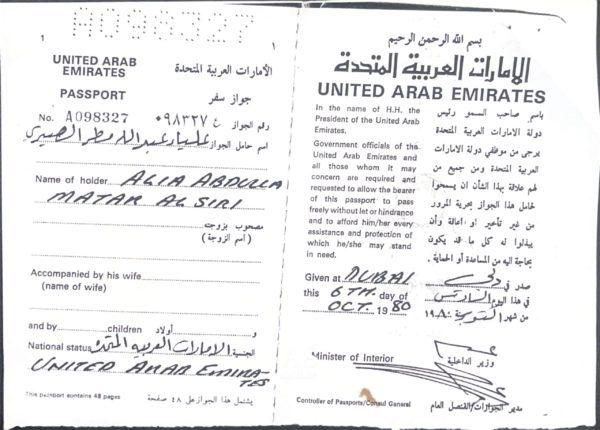 A098327
1
UNITED ARAB
EMIRATES
الأمارات العربية المتحدة
PASSPORT
جواز سفر
No. A098327
رقم الجواز ٠٩٨٣٢٧
اسم حامل الجواز
Name of holder ALIA ABDULLA
MATAR ALSIRI
مصحوب بزوجت
(اسم الزوجة)
Accompanied by his wife
(name of wife)
and by children أولاد و
National status الجنسية الامارات العربية المتحدة
UNITED ARAB EMIRA-
TES
This passport contains 48 pages يشتمل هذا الجواز على ٤٨ صفحة
١
بسم الله الرحمن الرحيم
الإمارات العربية المتحدة
UNITED ARAB EMIRATES
In the name of H.H. the
President of the United Arab
Emirates.
Government officials of the
United Arab Emirates and
all those whom it may
concern are required and
requested to allow the bearer
of this passport to pass
freely without let or hindrance
and to afford him/her every
assistance and protection of
which he/she may stand
in need.
باسم صاحب السمو رئيس
دولة الامارات العربية المتحدة
يرجى من موظفي دولة الامارات
العربية المتحدة ومن جميع من
لهم علاقة بهذا الشأن ان يسمحوا
لحامل هذا الجواز بحرية المرور
من غير تأخير أو اعاقة وأن
يبذلوا له كل ما قد يكون
بحاجة اليه من المساعدة أو الحماية .
Given at DUBAI
صدر في دبي
this 6TH. day of
في هذا اليوم السادس
OCT. 1980
من شهر اكتوبر ١٩٨٠
Minister of Interior
وزير الداخلية
Controller of Passports/Consul General
مدير الجوازات/القنصل العام